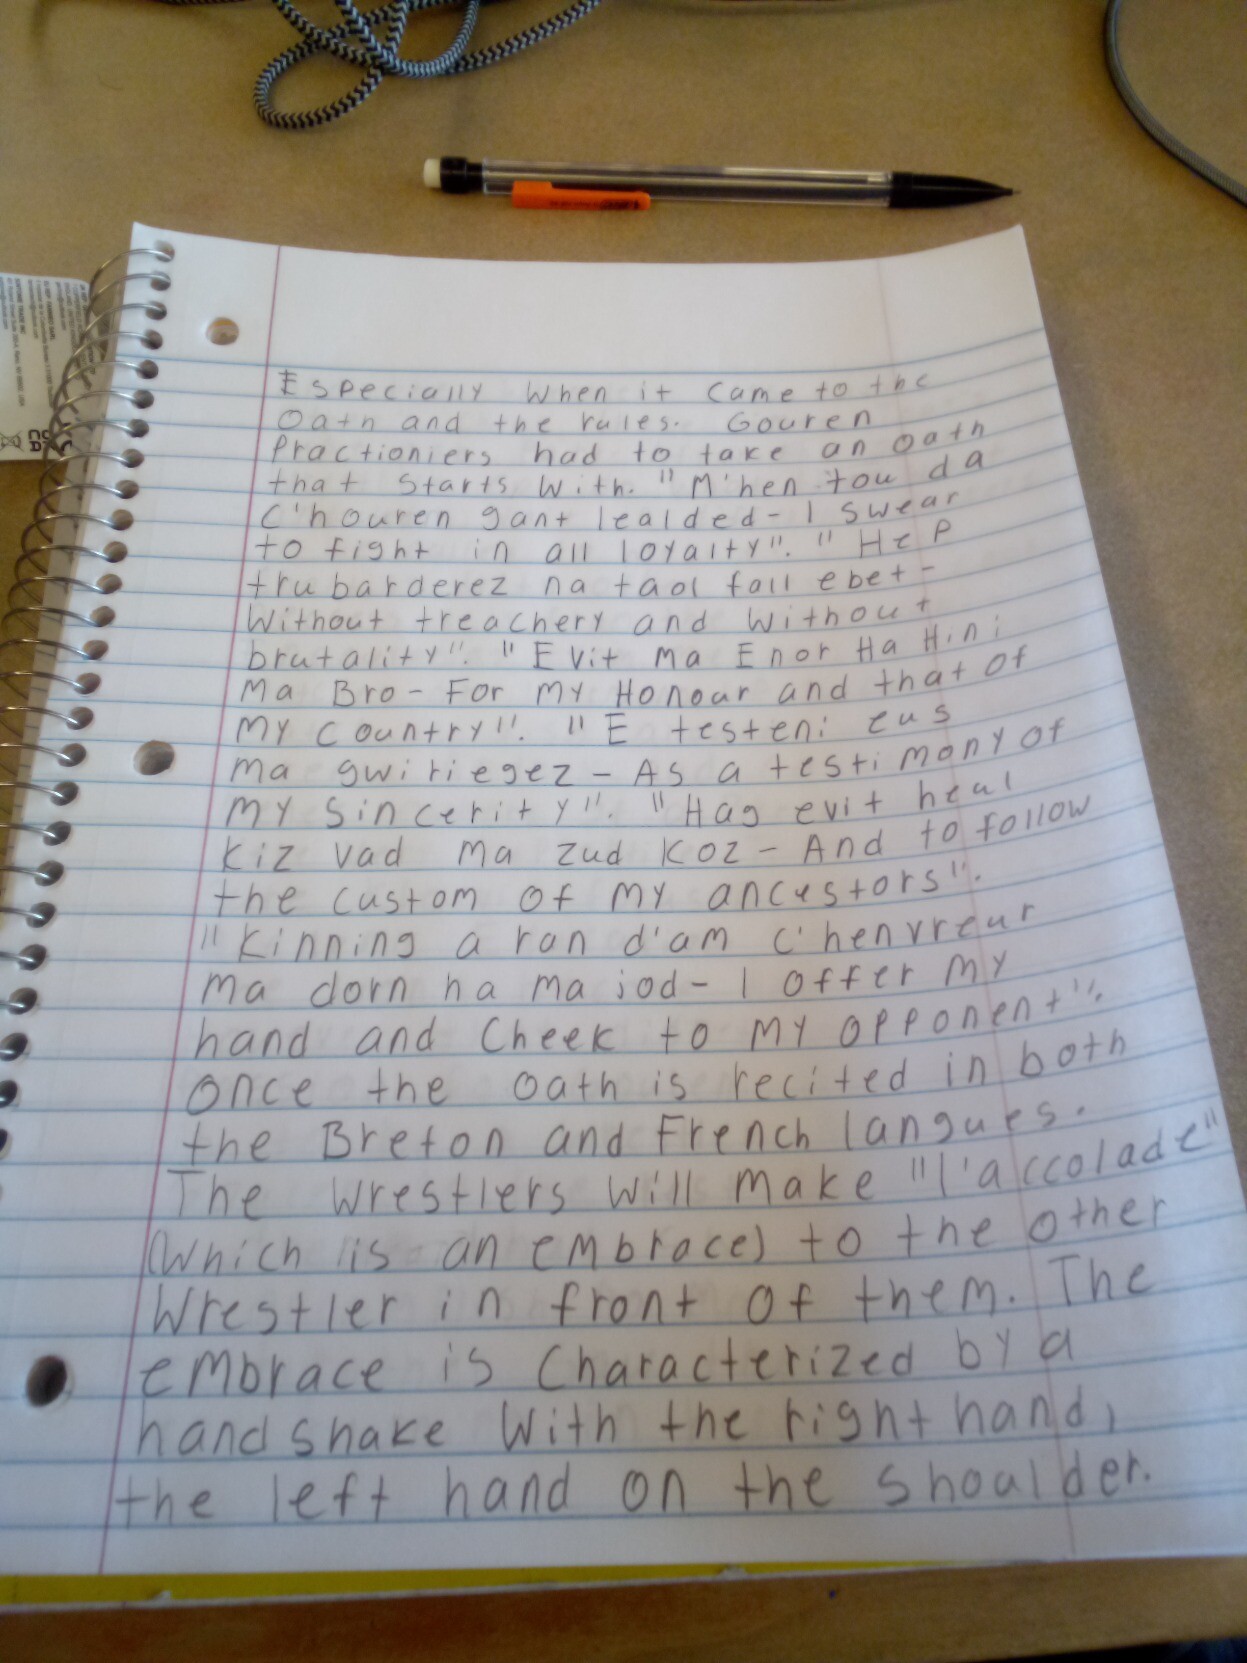 Especially when it came to the
Oath and the rules. Gouren
Practioniers had to take an oath
that starts with. "M'hen tou da
c'houren gant lealded - I swear
to fight in all loyalty". "Hep
trubarderez na taol fall ebet -
Without treachery and without
brutality". "Evit ma Enor Ha Hini
Ma Bro - For my Honour and that of
my country". "E testeni eus
ma gwiriegez - As a testimony of
my sincerity". "Hag evit heul
kiz vad ma zud koz - And to follow
the custom of my ancestors".
"Kinning a ran d'am c'henvreur
ma dorn ha ma jod - I offer my
hand and cheek to my opponent".
once the oath is recited in both
the Breton and French langues.
The wrestlers will make "l'accolade"
(which is an embrace) to the other
wrestler in front of them. The
embrace is characterized by a
handshake with the right hand,
the left hand on the shoulder.